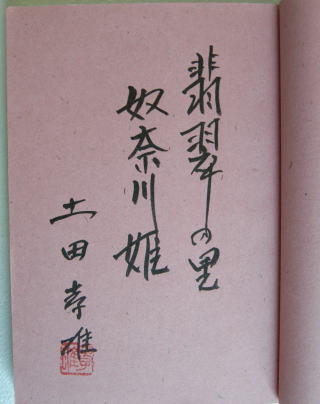 翡翠の里
奴奈川姫
土田孝雄